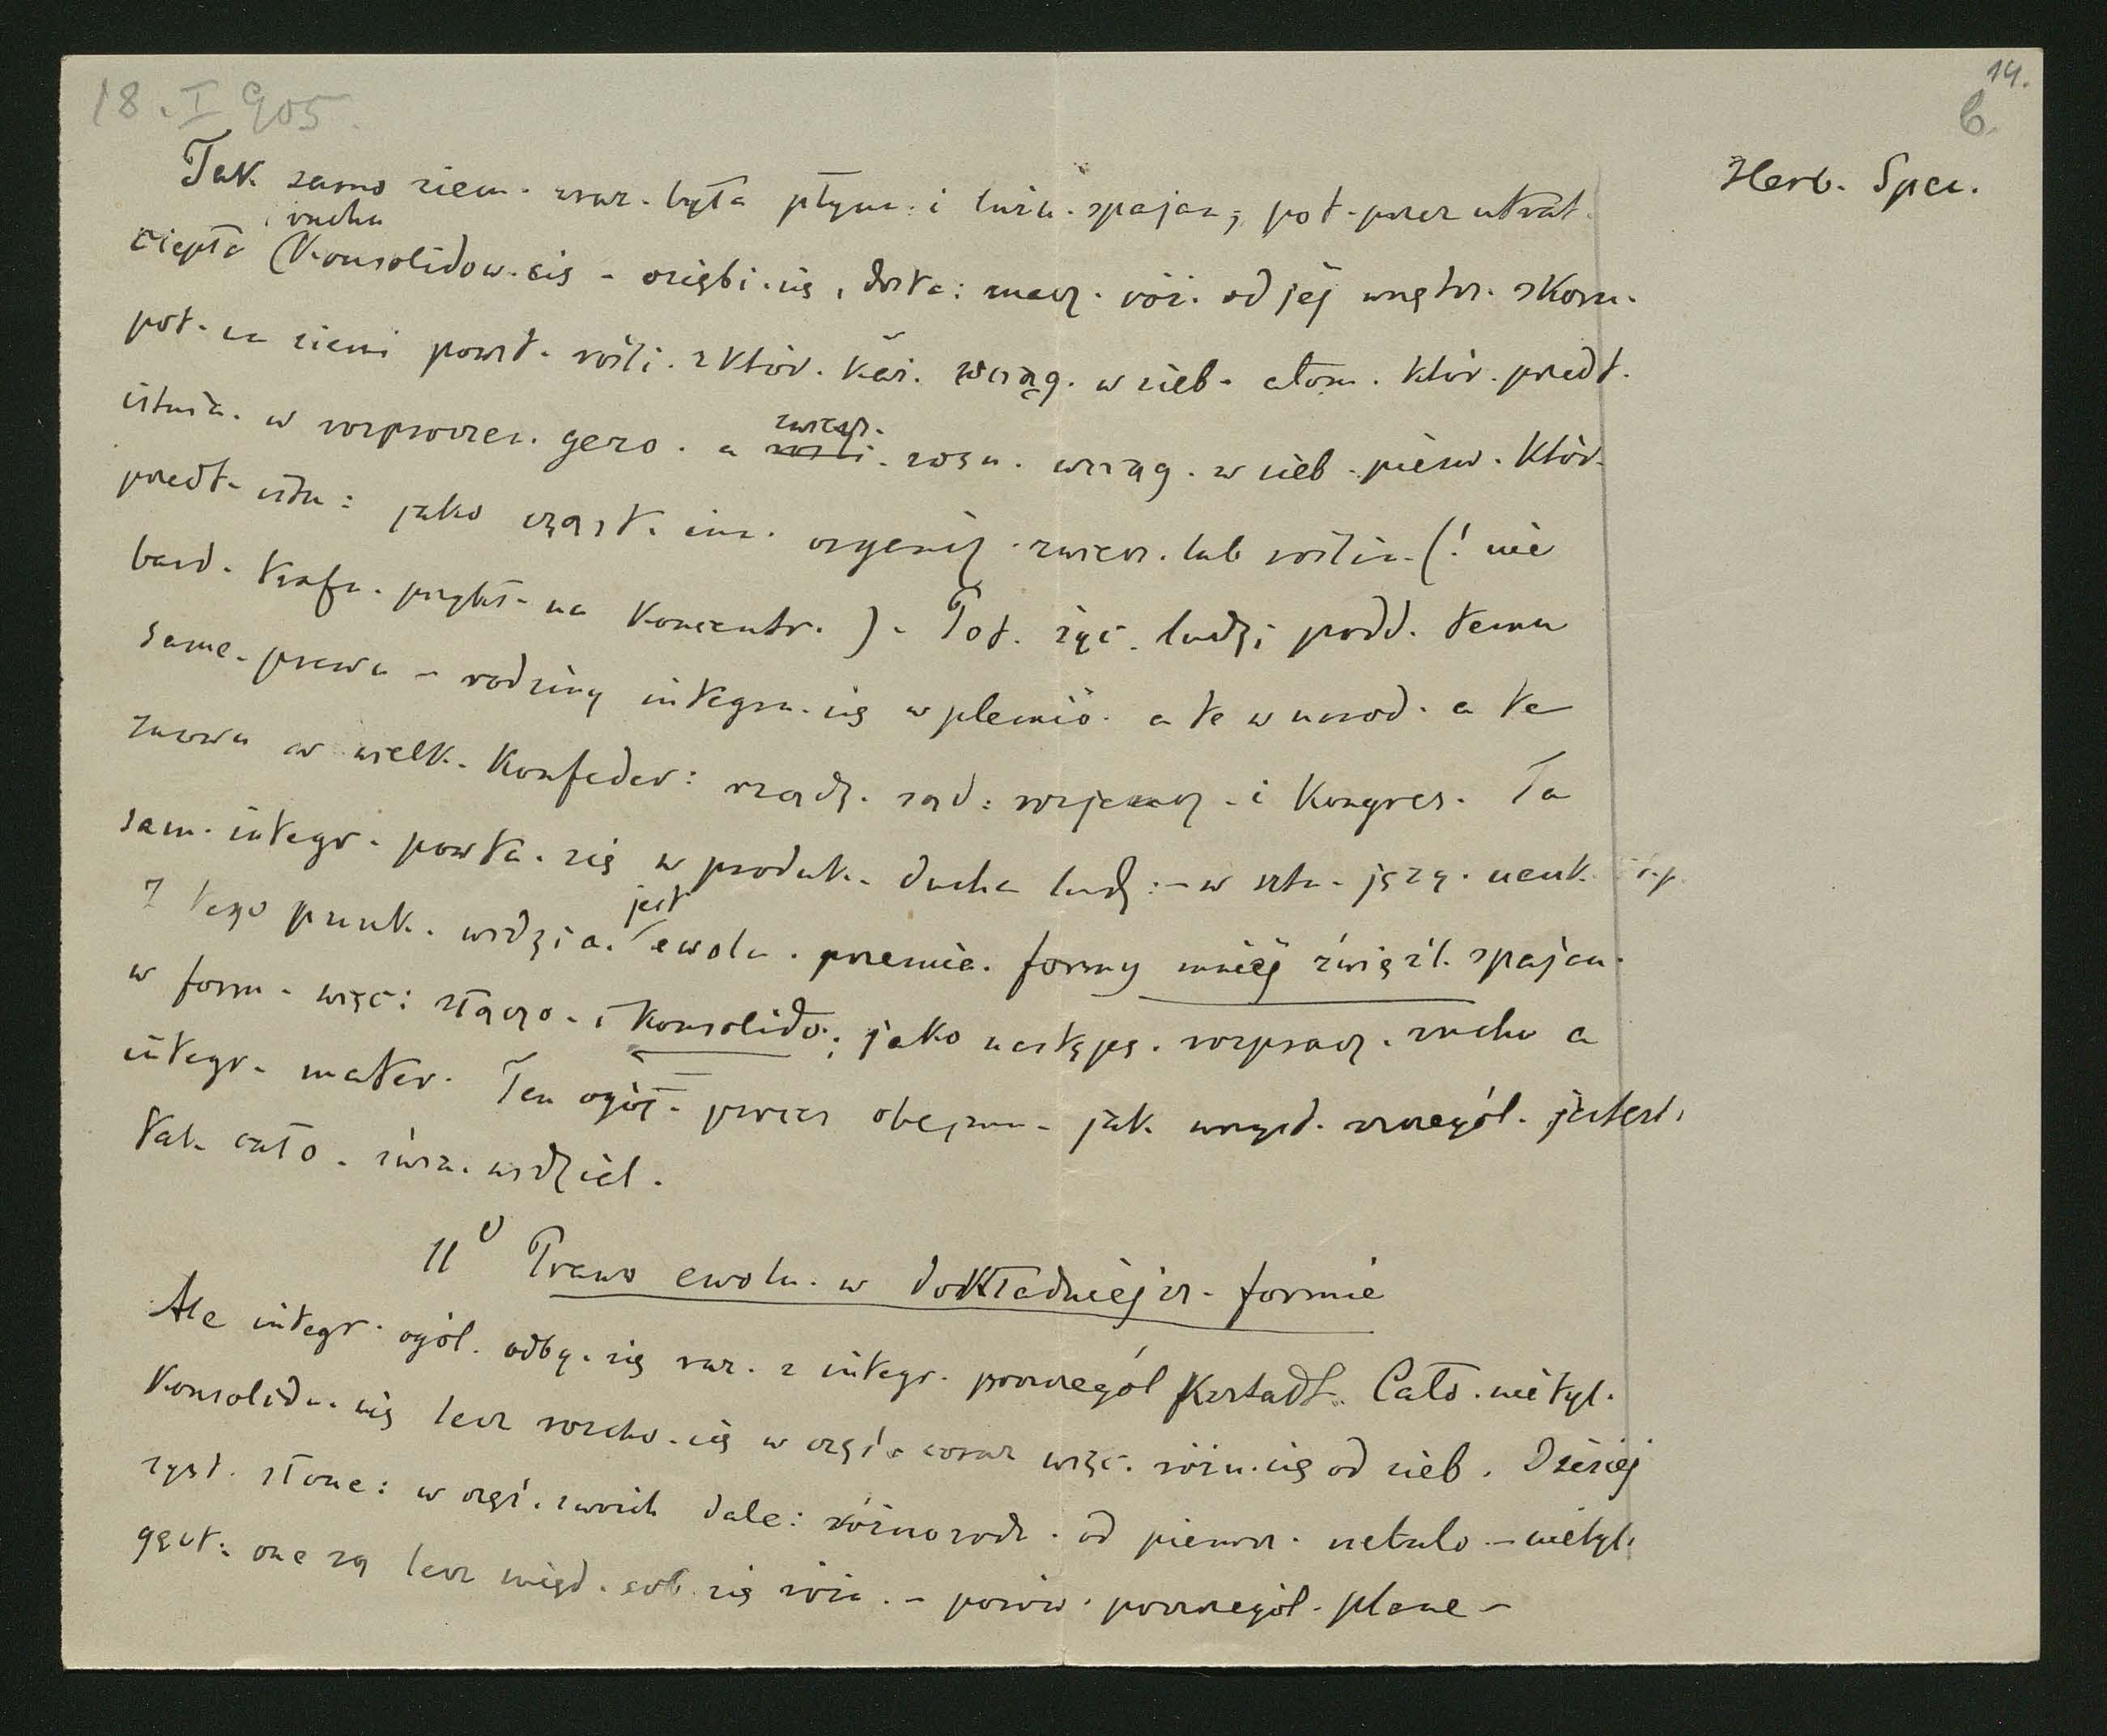 18. I 905.
14.
6.
Herb. Spen.
Tak samo ziem. wraz. była płyn. i luźn. spajan; pot. przez utrat.
i ruchu
ciepła (Konsolidow. się - oziębi. się, dosta: znacz. róż. od jej wnętrz. skoru.
pot. na ziemi powst. rośli. z któr. każ. wciąg. w sieb. atom. któr. przedt.
istnia. w rozproszen. gazo. a zwierz. rosn. wciąg. w sieb. pierw. któr.
przedt. istn: jako cząst. inn. organicz. zwierz. lub roślin. (! nie
bard. trafn. przykł. na koncentr.). Pot. życ. ludz; podd. temu
same. prawu - rodziny integru. się w plemio. a te w narod. a te
znowu w wielk. Konfeder: rządz. sąd: rozjemcz. i Kongres. Ta
sam. integr. powta. się w produk. ducha ludz: - w sztu. języ. nauk. i t.p.
Z tego punk. widzia. jest ewolu. przemia. formy mniej zwięzł. spajan.
w form. więc: złączo. i Konsolido.; jako następs. rozprasz. ruchu a
integr. mater. Ten ogół. proces obejmu. jak wszyst. szczegól. jestest.
tak cało. świa. widzial.
II° Prawo ewolu. w dokładniejsz. formie
Ale integr. ogól. odby. się raz. z integr. poszczegól kształt. Cało. nietyl.
Konsolidu. się lecz rozcho. się w częś. coraz więc. różn. się od sieb. Dzisiej
syst. słone: w częś. swoich dale: różnorodn. od pierwsz. nebulo. - nietyl.
gęst. one są lecz międ. sob. się róż. - porów. poszczegól. plane -